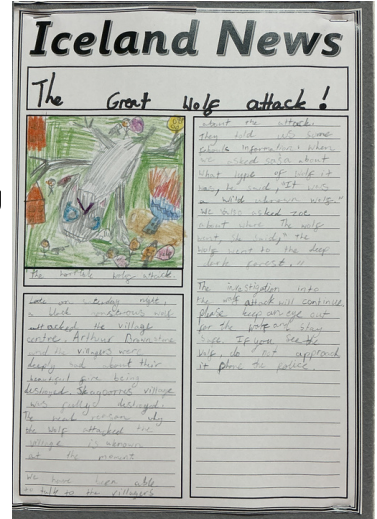 Iceland News
The Great Wolf attack!
the horrible wolf attack.
Late on Sunday night,
a black wolf
attacked the village
centre. Arthur
and the villagers were
deeply sad about their
beautiful fire being
village
was
The reason why
the wolf attacked the
village is
at the moment
We have been able
to talk to the villagers
about the attack.
They told us some
information: where
we asked about
what type of wolf it
was, he said, "It was
a wild wolf."
We also asked
about where the wolf
went, she said, "the
wolf went to the deep
dark forest."
The investigation into
the wolf attack will continue
please keep an eye out
for the wolf and stay
safe. If you see the
wolf, do not approach
it phone the police